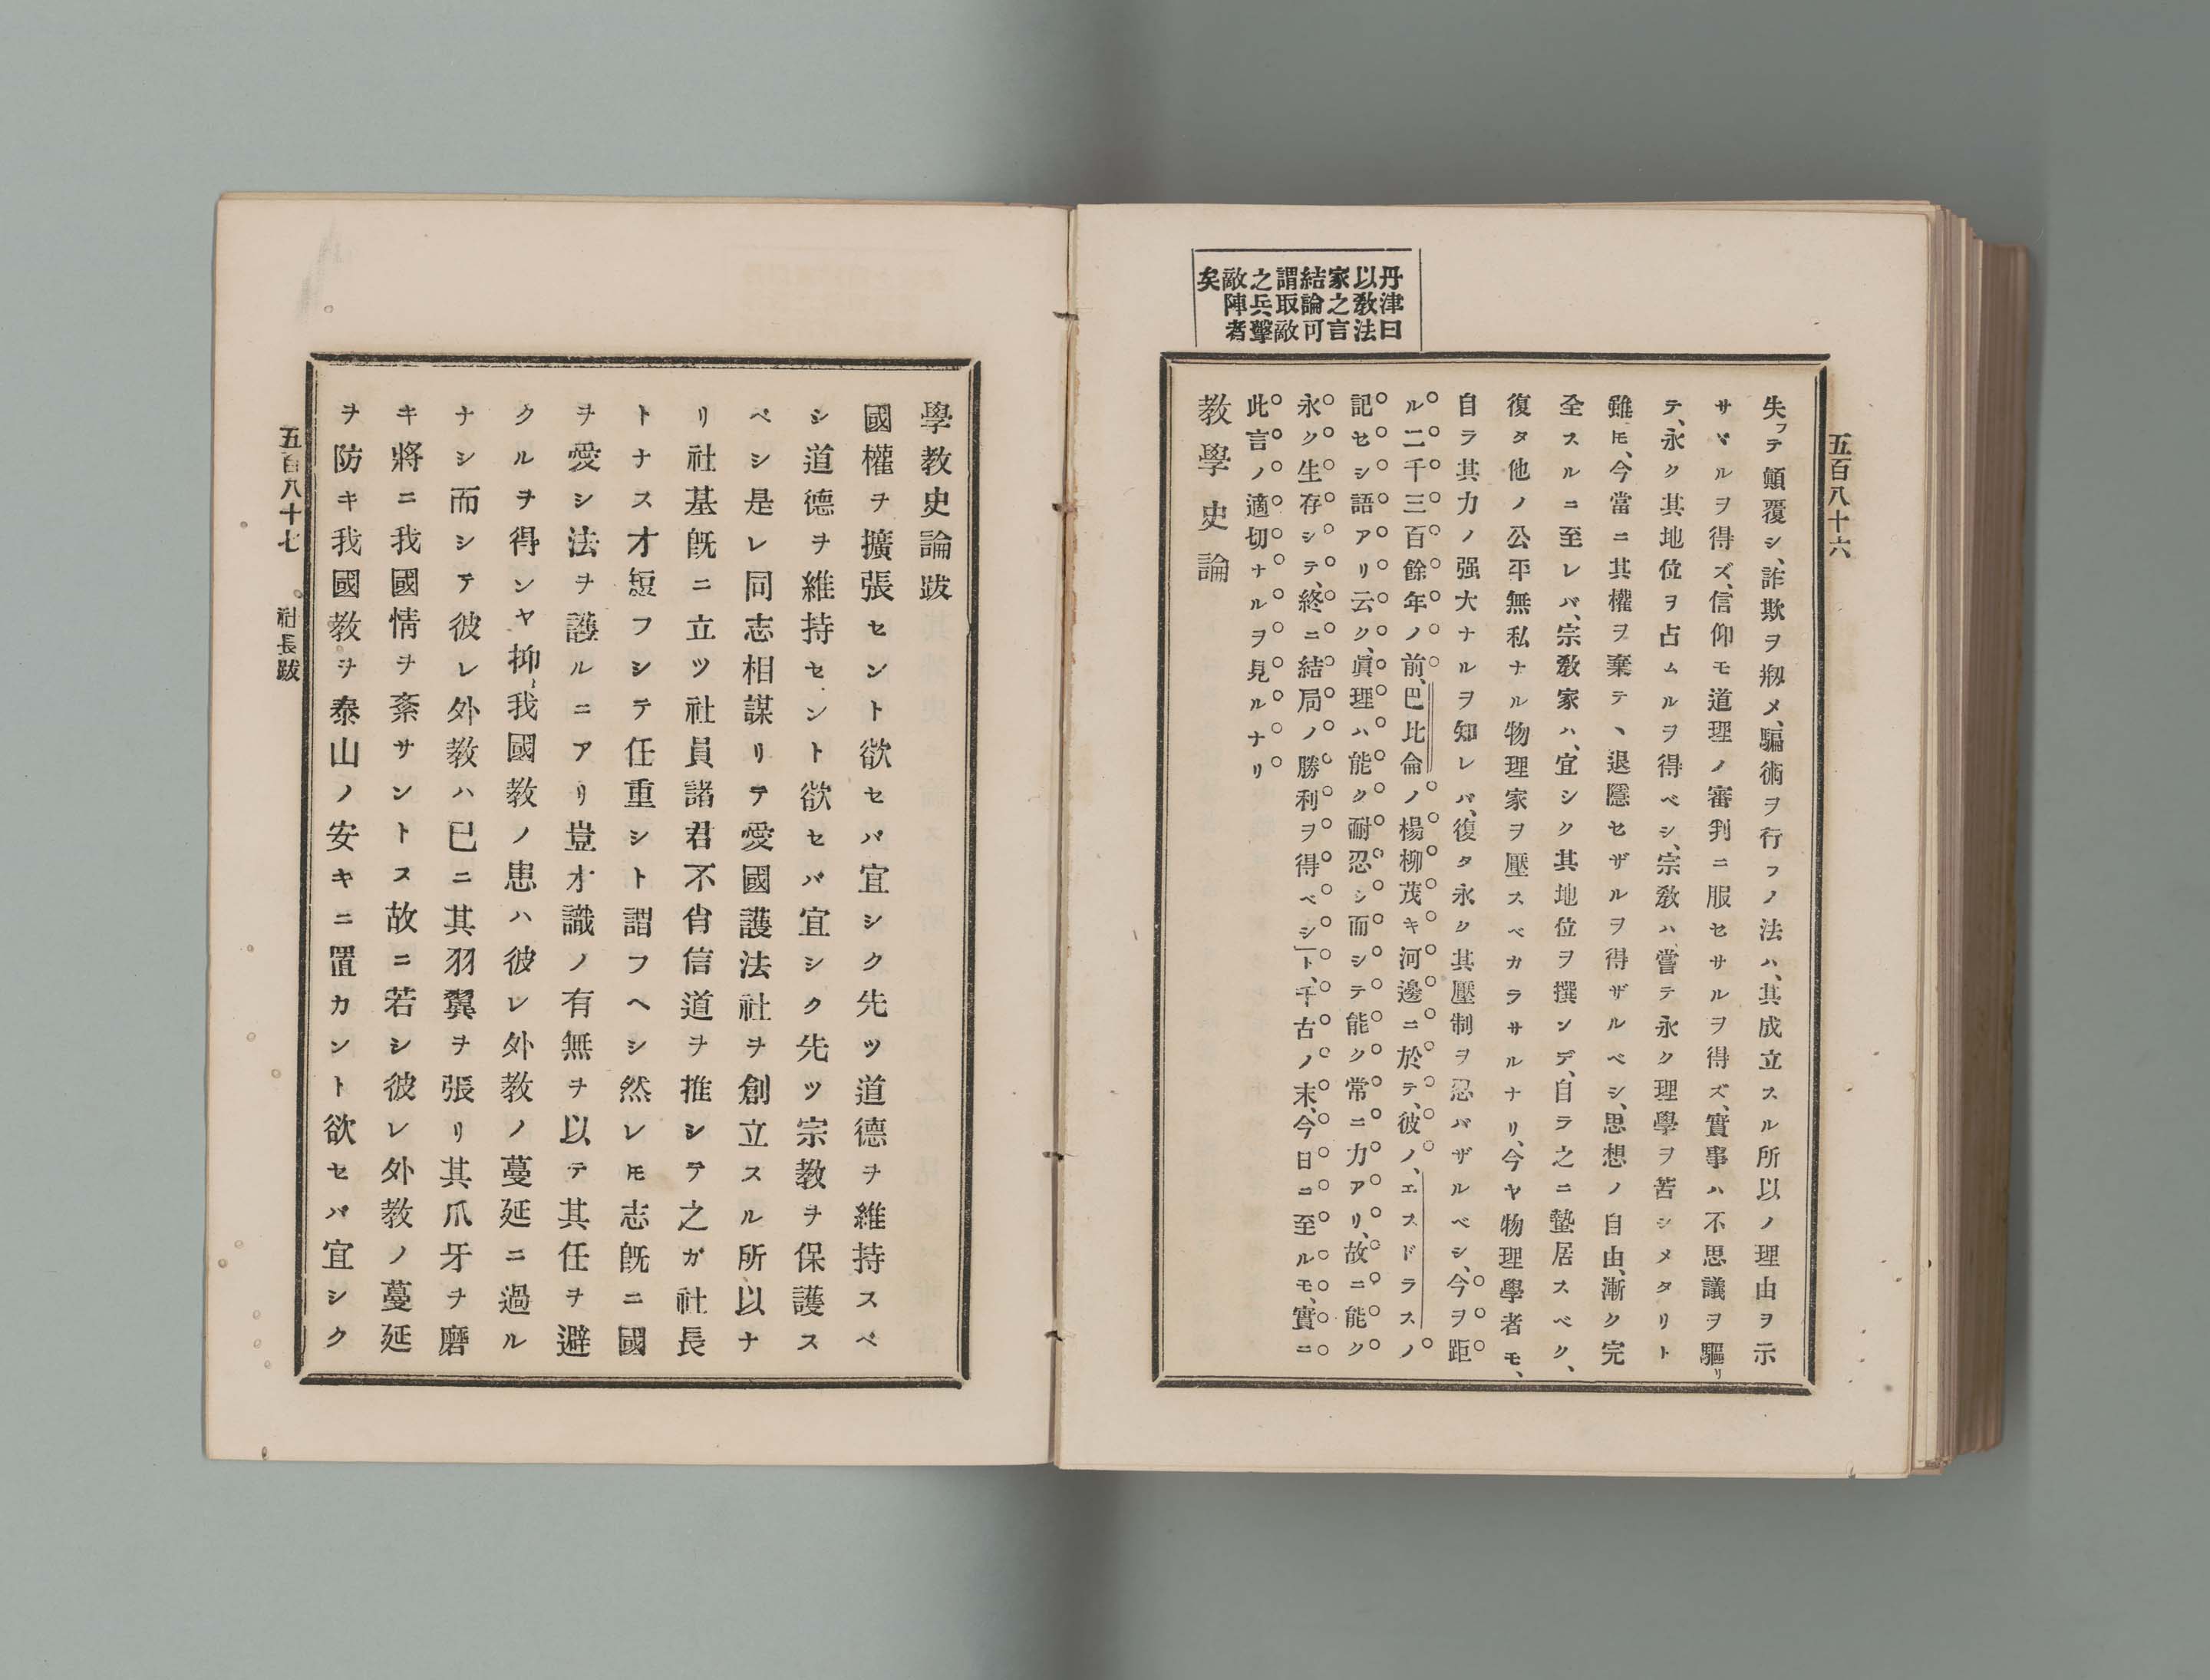 五百八十六
丹津曰
以敎法
家之言
結論可
謂取敵
之兵擊
敵陣者
矣
失フテ顚覆シ、詐欺ヲ剏メ、騙術ヲ行フノ法ハ、其成立スル所以ノ理由ヲ示
サヾルヲ得ズ、信仰モ道理ノ審判ニ服セサルヲ得ズ、實事ハ不思議ヲ驅リ
テ、永ク其地位ヲ占ムルヲ得ベシ、宗敎ハ、嘗テ永ク理學ヲ苦シメタリト
雖𪜈、今當ニ其權ヲ棄テヽ退隱セザルヲ得ザルベシ、思想ノ自由、漸ク完
全スルニ至レバ、宗敎家ハ、宜シク其地位ヲ撰ンデ、自ラ之ニ蟄居スベク、
復タ他ノ公平無私ナル物理家ヲ壓スベカラサルナリ、今ヤ物理學者モ、
自ラ其力ノ强大ナルヲ知レバ、復タ永ク其壓制ヲ忍バザルベシ、今ヲ距
ル二千三百餘年ノ前、巴比侖ノ楊柳茂キ河邊ニ於テ、彼ノ、エスドラスノ
記セシ語アリ云ク、眞理ハ能ク耐忍シ而シテ能ク常ニ力アリ、故ニ能ク
永ク生存シテ、終ニ結局ノ勝利ヲ得ベシ」ト、千古ノ末、今日ニ至ルモ、實ニ
此言ノ適切ナルヲ見ルナリ
敎學史論
學教史論跋
國權ヲ擴張セント欲セバ宜シク先ッ道德ヲ維持スベ
シ道德ヲ維持セント欲セバ宜シク先ッ宗教ヲ保護ス
ベシ是レ同志相謀リテ愛國護法社ヲ創立スル所以ナ
リ社基既ニ立ツ社員諸君不肖信道ヲ推シテ之ガ社長
トナス才短フシテ任重シト謂フヘシ然レ𪜈志既ニ國
ヲ愛シ法ヲ護ルニアリ豈才識ノ有無ヲ以テ其任ヲ避
クルヲ得ンヤ抑〻我國教ノ患ハ彼レ外教ノ蔓延ニ過ル
ナシ而シテ彼レ外教ハ已ニ其羽翼ヲ張リ其爪牙ヲ磨
キ將ニ我國情ヲ紊サントス故ニ若シ彼レ外教ノ蔓延
ヲ防キ我國教ヲ泰山ノ安キニ置カント欲セバ宜シク
五百八十七　社長跋